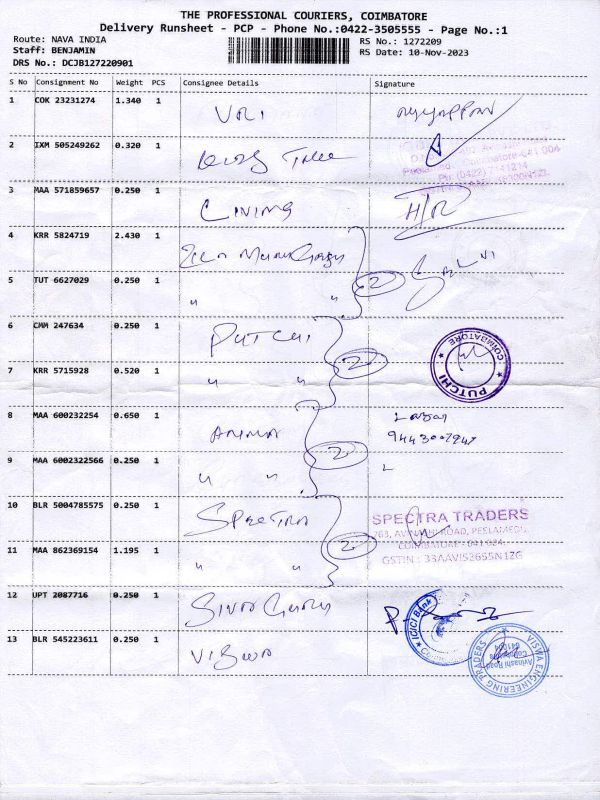 THE PROFESSIONAL COURIERS, COIMBATORE
Delivery Runsheet - PCP - Phone No.:0422-3505555 - Page No.:1
Route: NAVA INDIA
Staff: BENJAMIN
DRS No.: DCJB127220901
RS No.: 1272209
RS Date: 10-Nov-2023
S No Consignment No Weight PCS Consignee Details Signature
1 COK 23231274 1.340 1
2 IXM 505249262 0.320 1
3 MAA 571859657 0.250 1 LIVING
4 KRR 5824719 2.430 1
5 TUT 6627029 0.250 1 " " 2
6 CMM 247634 0.250 1 PUTCHI
PUTCHI COIMBATORE
7 KRR 5715928 0.520 1 " " 2
8 MAA 600232254 0.650 1
9 MAA 6002322566 0.250 1 " " 2
10 BLR 5004785575 0.250 1 SPECTRA
SPECTRA TRADERS
COIMBATORE
GSTIN : 33AAVIS2655N1ZG
11 MAA 862369154 1.195 1 " " 2
12 UPT 2087716 0.250 1
ICICI Bank
13 BLR 545223611 0.250 1 VISWA
VISWA ENGINEERING TRADERS
Avinashi Road